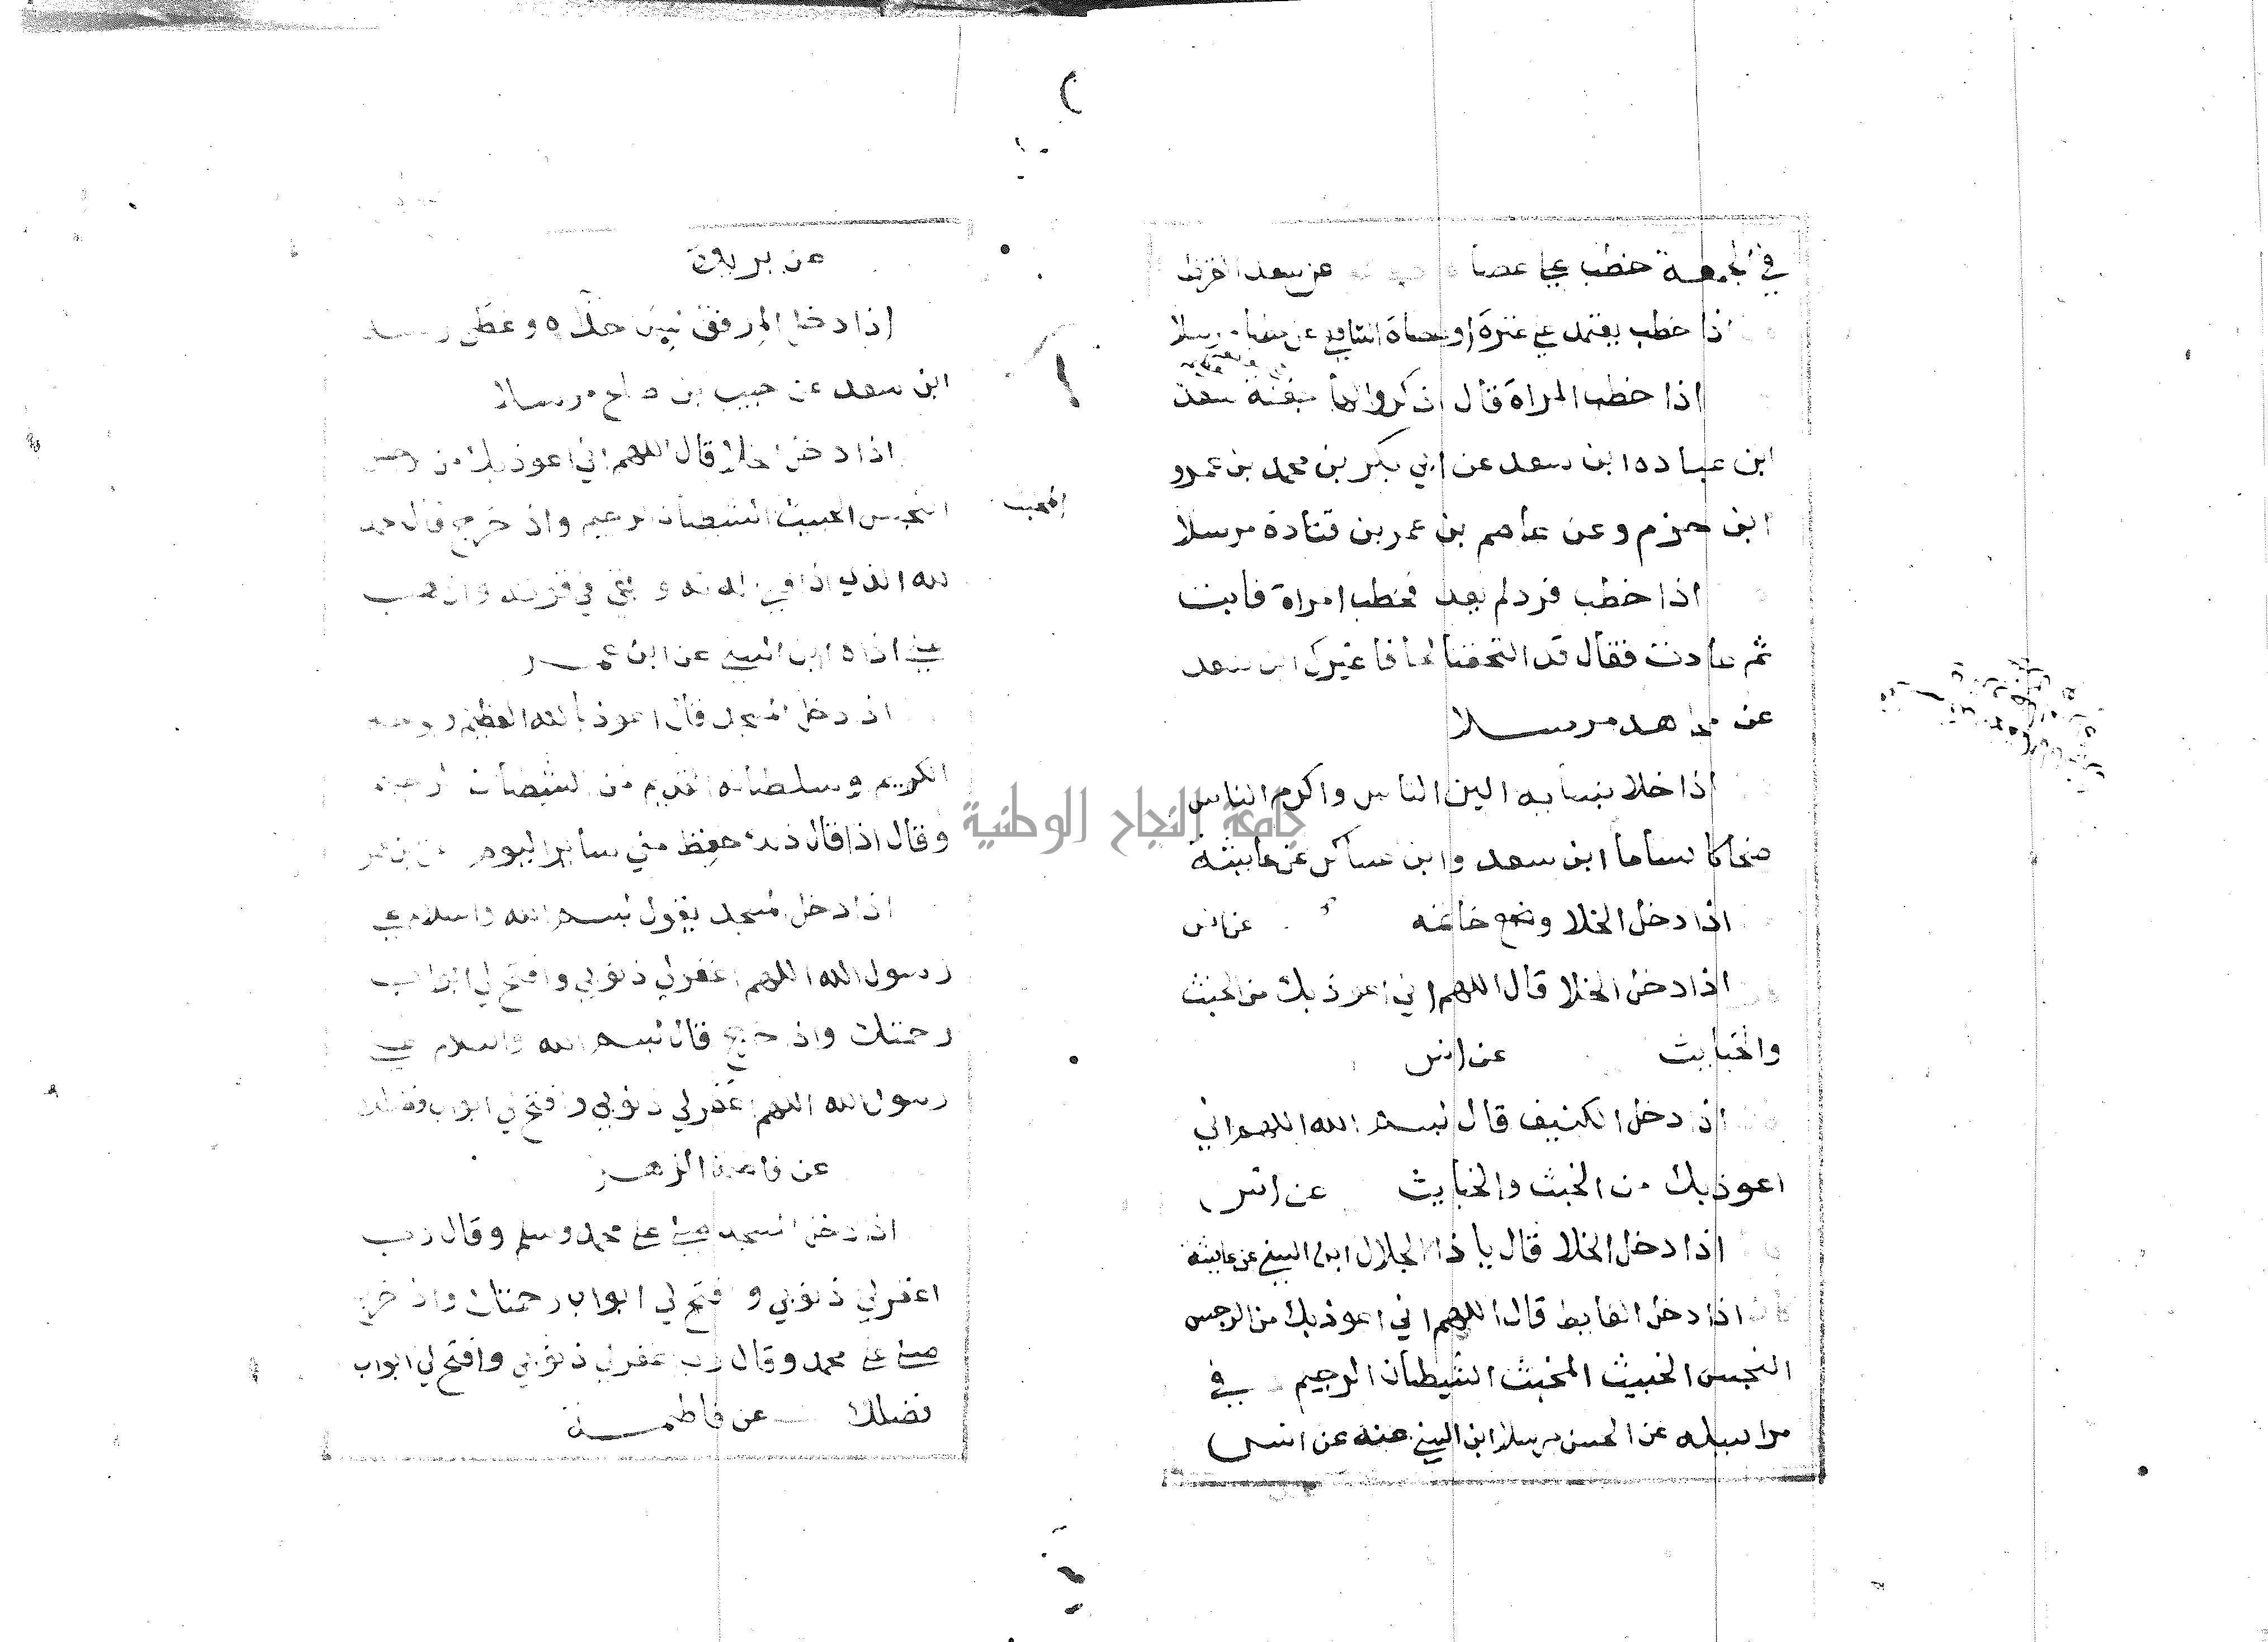 في الجمعة خطب على عصا عن سعد القرظ
اذا خطب يعتمد على عنزة او عصاة الشافعي عن عطا مرسلا
اذا خطب المراة قال اذكروا لها جفنة سعد
ابن عباده ابن سعد عن ابي بكر بن محمد بن عمرو
ابن حزم وعن عاصم بن عمر بن قتادة مرسلا
اذا خطب فرد لم يعد فخطب امراة فابت
ثم عادت فقال قد التحفنا لحافا غيرك ابن سعد
عن مجاهد مرسلا
اذا خلا بنسايه الين الناس واكرم الناس
ضحاكا بساما ابن سعد وابن عساكر عن عايشة
اذا دخل الخلا وضع خاتمه عن انس
اذا دخل الخلا قال اللهم اني اعوذ بك من الخبث
والخبايث عن انس
اذا دخل الكنيف قال بسم الله اللهم اني
اعوذ بك من الخبث والخبايث عن انس
اذا دخل الخلا قال يا ذا الجلال ابن السني عن عايشة
اذا دخل الغايط قال اللهم اني اعوذ بك من الرجس
النجس الخبيث المخبث الشيطان الرجيم في
مراسيله عن الحسن مرسلا ابن السني عنه عن انس
عن بريدة
اذا دخل المرفق لبس حذاه وغطى راسه
ابن سعد عن حبيب بن صالح مرسلا
اذا دخل الخلا قال اللهم اني اعوذ بك من الرجس
النجس الخبيث الشيطان الرجيم واذا خرج قال الحمد
المخبث
لله الذي اذاقني لذته وابقى في قوته واذهب
عني اذاه ابن السني عن ابن عمر
اذا دخل المسجد قال اعوذ بالله العظيم وبوجهه
الكريم وسلطانه القديم من الشيطان الرجيم
وقال اذا قال ذلك حفظ مني ساير اليوم عن ابن عمر
اذا دخل المسجد يقول بسم الله والسلام على
رسول الله اللهم اغفر لي ذنوبي وافتح لي ابواب
رحمتك واذا خرج قال بسم الله والسلام على
رسول الله اللهم اغفر لي ذنوبي وافتح لي ابواب فضلك
عن فاطمة الزهرا
اذا دخل المسجد صلى على محمد وسلم وقال رب
اغفر لي ذنوبي وافتح لي ابواب رحمتك واذا خرج
صلى على محمد وقال رب اغفر لي ذنوبي وافتح لي ابواب
فضلك عن فاطمة
جامعة النجاح الوطنية